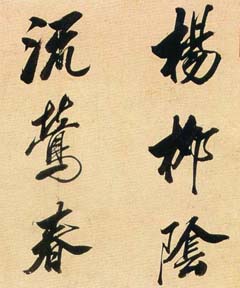 楊柳陰
流鶯春